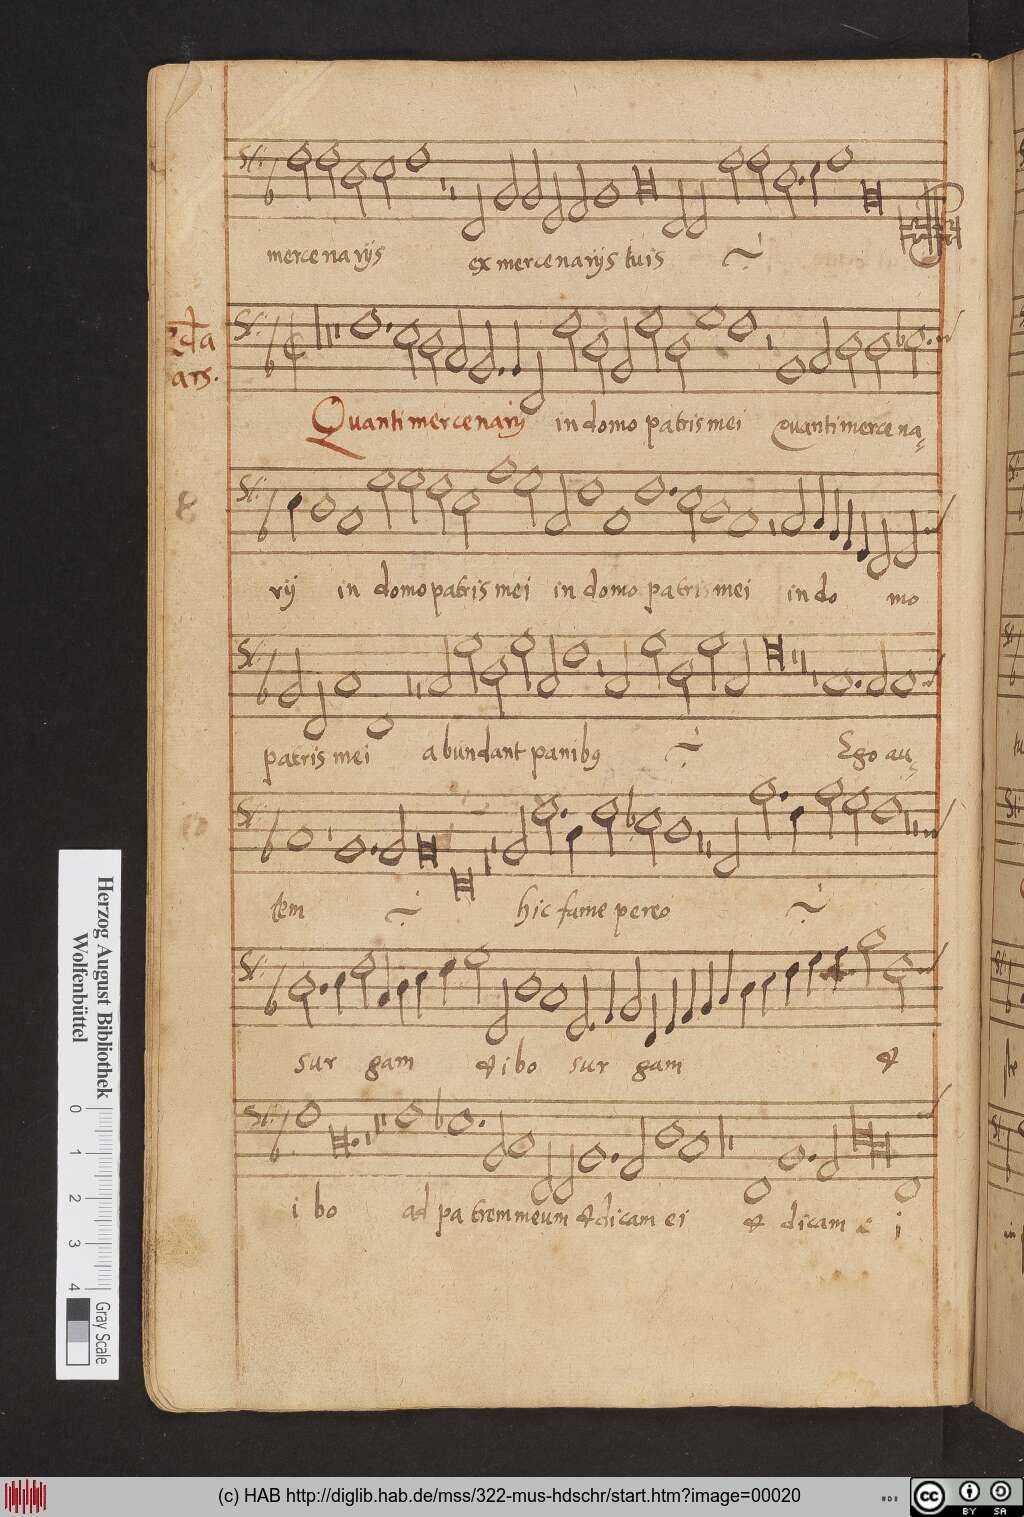 mercenarijs ex mercenarijs tuis
2da
ars.
Quanti mercenarij in domo patris mei quanti mercena
8
rij in domo patris mei in domo patris mei in do mo
patris mei abundant panibꝰ Ego au
tem hic fame pereo
sur gam et ibo sur gam et
i bo ad patrem meum et dicam ei et dicam e i
Herzog August Bibliothek
Wolfenbüttel
0 1 2 3 4
Gray Scale
(c) HAB http://diglib.hab.de/mss/322-mus-hdschr/start.htm?image=00020
cc BY SA